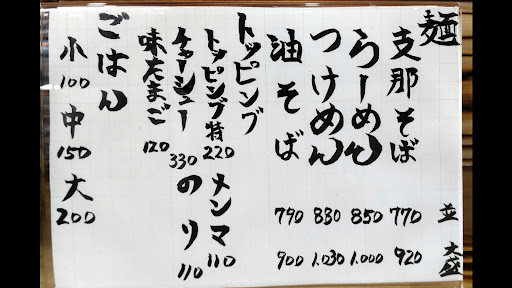 麺 並 大盛
支那そば 770 920
らーめん 850 1.000
つけめん 830 1.030
油そば 790 900
トッピング
トッピング特 220 メンマ 110
チャーシュー 330 のり 110
味たまご 120
ごはん
小 100 中 150 大 200